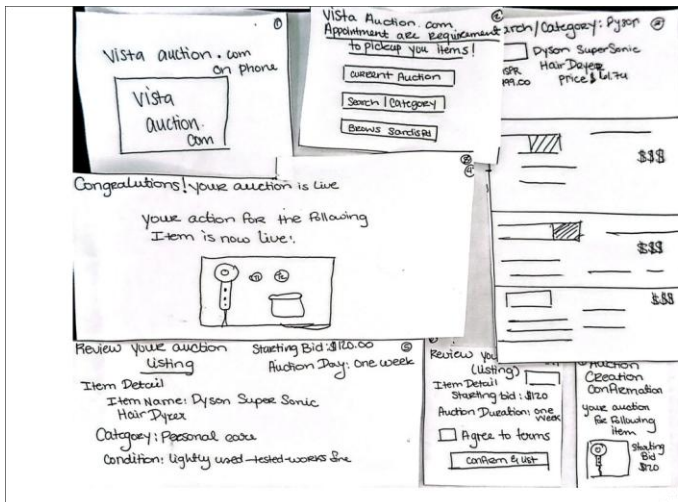 ①
Vista auction.com
on phone
Vista
auction.
com
②
Vista Auction.com
Appointment are Requirement
to pickup you items!
Current Auction
Search / Category
arch / Category: Dyson
Dyson SuperSonic
Hair Dryer
price $
$$$
$$$
$$$
③
④
Congralutions! your auction is live
your action for the following
Item is now Live:
Review your auction
Listing
Starting Bid: $120.00
Auction Day: One week
⑤
Item Detail
Item Name: Dyson Super Sonic
Hair Dyrer
Category: Personal care
Condition: lightly used-tested-works fine
Review you
(Listing)
Item Detail
Starting bid: $120
Auction Duration: one
week
Agree to terms
Confirm & List
Auction
Creation
Confirmation
your auction
for following
item
Starting
Bid
$120